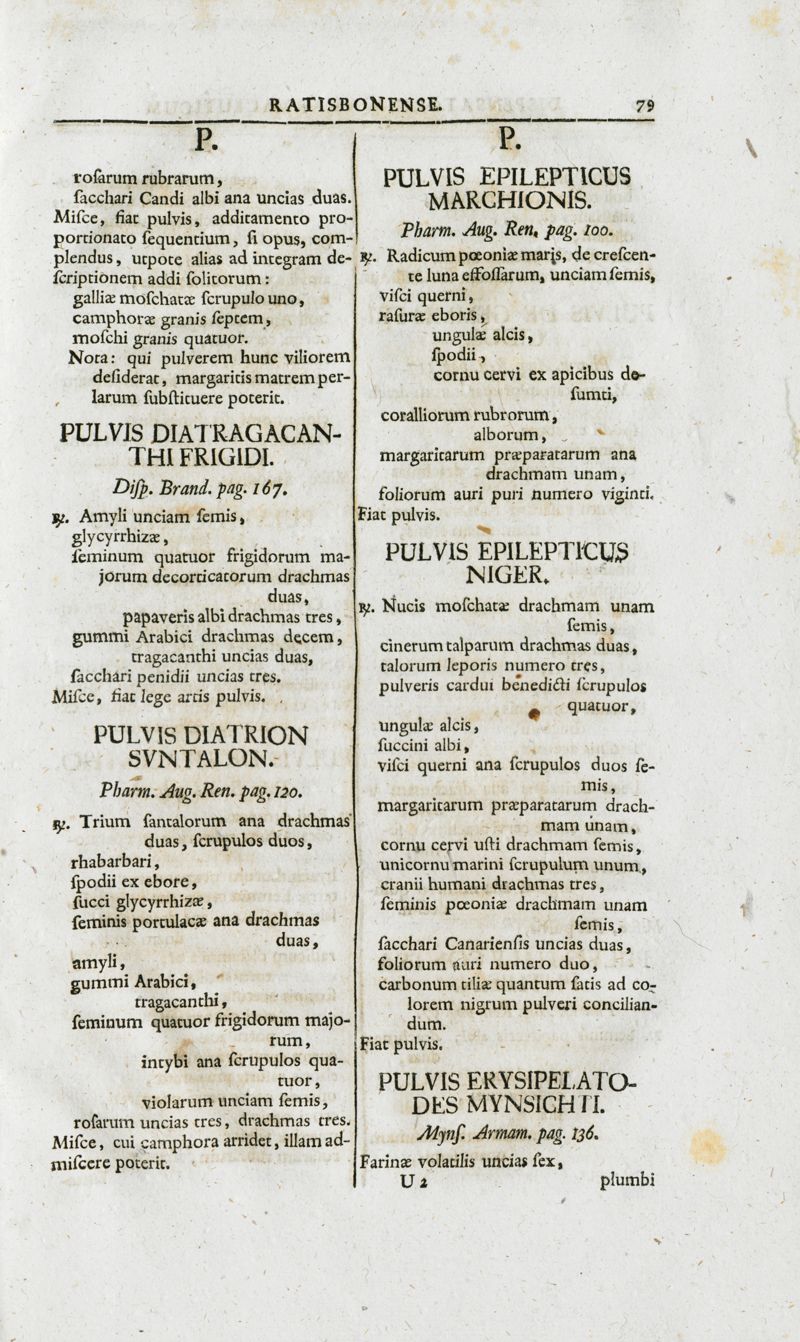 RATISBONENSE. 79
P.
roſarum rubrarum,
ſacchari Candi albi ana uncias duas.
Miſce, fiat pulvis, additamento pro-
portionato ſequentium, ſi opus, com-
plendus, utpote alias ad integram de-
ſcriptionem addi ſolitorum:
galliæ moſchatæ ſcrupulo uno,
camphoræ granis ſeptem,
moſchi granis quatuor.
Nota: qui pulverem hunc viliorem
deſiderat, margaritis matrem per-
larum ſubſtituere poterit.
PULVIS DIATRAGACAN-
THI FRIGIDI.
Diſp. Brand. pag. 167.
℞. Amyli unciam ſemis,
glycyrrhizæ,
ſeminum quatuor frigidorum ma-
jorum decorticatorum drachmas
duas,
papaveris albi drachmas tres,
gummi Arabici drachmas decem,
tragacanthi uncias duas,
ſacchari penidii uncias tres.
Miſce, fiat lege artis pulvis.
PULVIS DIATRION
SVNTALON.
Pharm. Aug. Ren. pag. 120.
℞. Trium ſantalorum ana drachmas
duas, ſcrupulos duos,
rhabarbari,
ſpodii ex ebore,
ſucci glycyrrhizæ,
ſeminis portulacæ ana drachmas
duas,
amyli,
gummi Arabici,
tragacanthi,
ſeminum quatuor frigidorum majo-
rum,
intybi ana ſcrupulos qua-
tuor,
violarum unciam ſemis,
roſarum uncias tres, drachmas tres.
Miſce, cui camphora arridet, illam ad-
miſcere poterit.
P.
PULVIS EPILEPTICUS
MARCHIONIS.
Pharm. Aug. Ren. pag. 100.
℞. Radicum pœoniæ maris, de creſcen-
te luna effoſſarum, unciam ſemis,
viſci querni,
raſuræ eboris,
ungulæ alcis,
ſpodii,
cornu cervi ex apicibus de-
ſumti,
coralliorum rubrorum,
alborum,
margaritarum præparatarum ana
drachmam unam,
foliorum auri puri numero viginti.
Fiat pulvis.
PULVIS EPILEPTICUS
NIGER.
℞. Nucis moſchatæ drachmam unam
ſemis,
cinerum talparum drachmas duas,
talorum leporis numero tres,
pulveris cardui benedicti ſcrupulos
quatuor,
ungulæ alcis,
ſuccini albi,
viſci querni ana ſcrupulos duos ſe-
mis,
margaritarum præparatarum drach-
mam unam,
cornu cervi uſti drachmam ſemis,
unicornu marini ſcrupulum unum,
cranii humani drachmas tres,
ſeminis pœoniæ drachmam unam
ſemis,
ſacchari Canarienſis uncias duas,
foliorum auri numero duo,
carbonum tiliæ quantum ſatis ad co-
lorem nigrum pulveri concilian-
dum.
Fiat pulvis.
PULVIS ERYSIPELATO-
DES MYNSICHTI.
Mynſ. Armam. pag. 136.
Farinæ volatilis uncias ſex,
U 2 plumbi